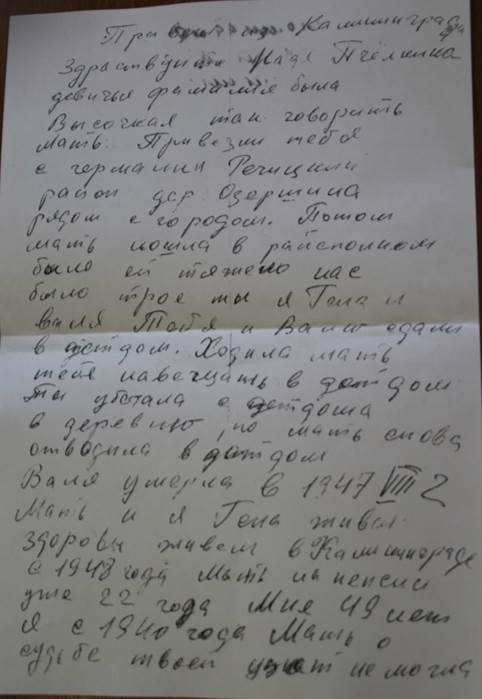 При Калининград
Здраствуите Надя Пчёлкина
девичья фамилия была
Высочкая так говорить
мать. Привезли тебя
с германии Речицкий
район дер Озершина
рядом с городом. Потом
мать пошла в райсполком
было ей тяжело нас
было трое ты я Гена и
валя Тебя и Валю сдали
в детдом. Ходила мать
тебя навещать в детдом
Ты убегала с детдома
в деревню, но мать снова
отводила в детдом
Валя умерла в 1947 VIII 2
Мать и я Гена живы
здоровы живем в Калининграде
с 1948 года Мать на пенсии
уже 22 года Мне 49 лет
Я с 1940 года Мать о
судьбе твоей не могла